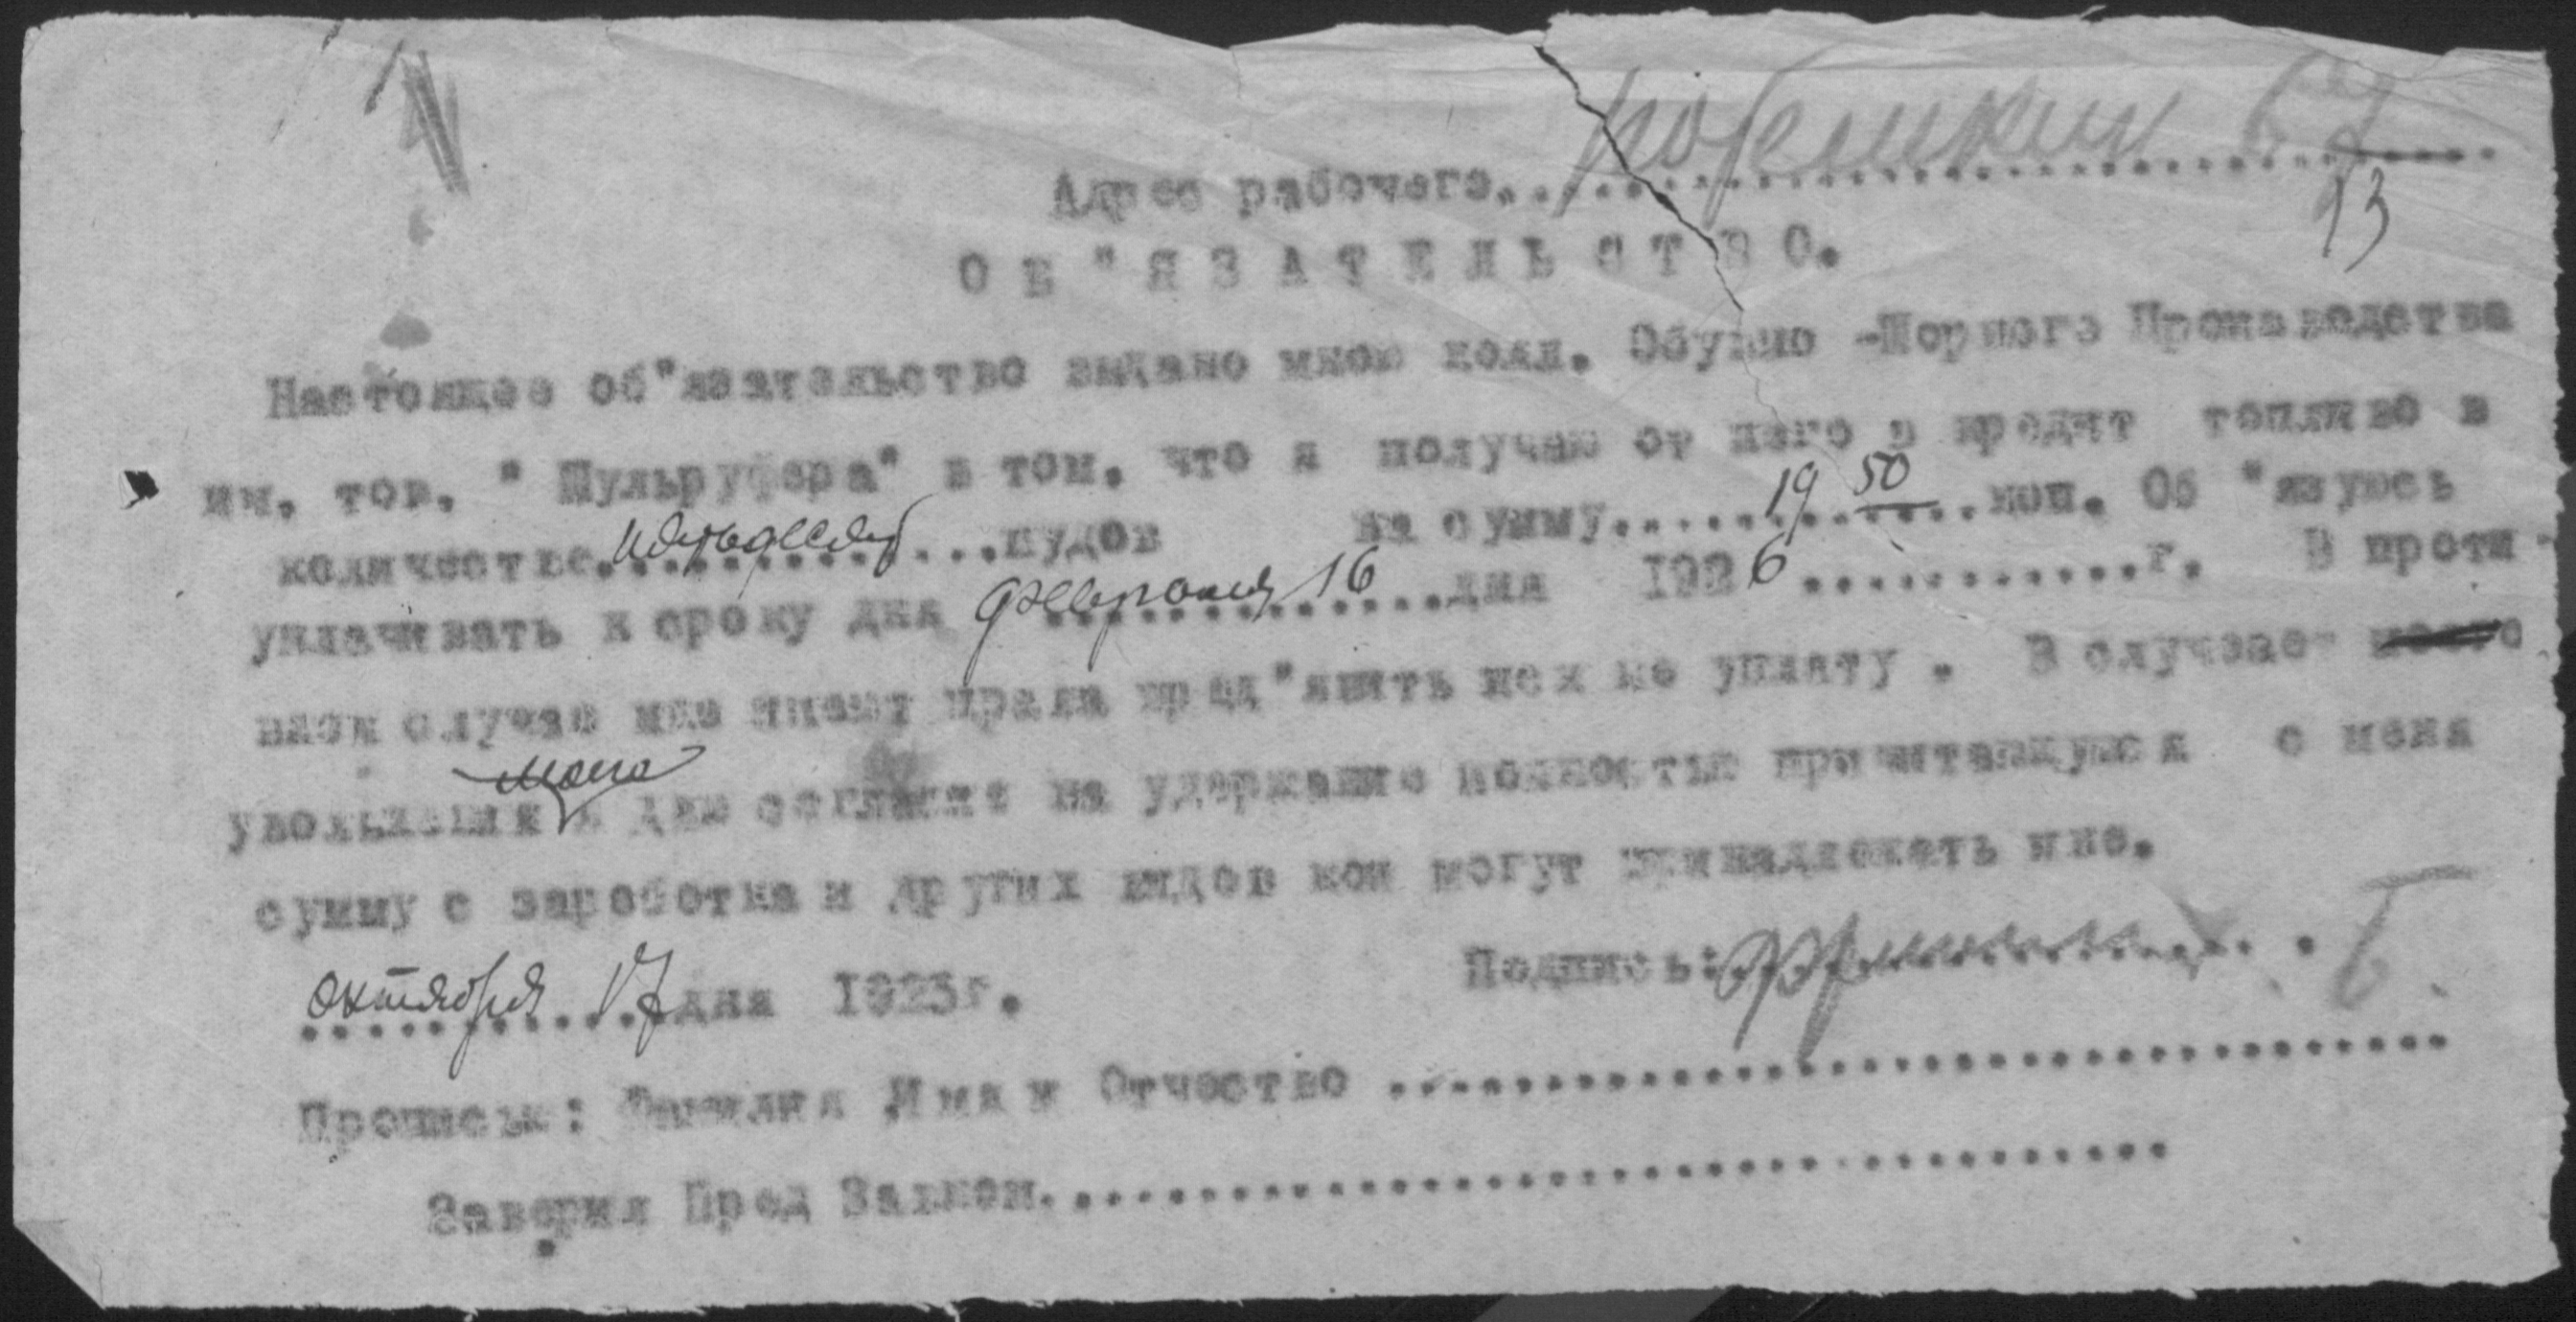 Адрес рабочего..............................
13
О Б " Я З А Т Е Л Ь С Т В О.
Настоящее об"язательство выдано мною колл. Обувно -Шорного Производства
им. тов. " Шульруфера" в том, что я получаю от него в кредит топливо в
количестве пятьдесят пудов на сумму 19 50 коп. Об "язуюсь
уплачивать к сроку дня февраля 16 дня 1926 г. В проти-
вном случае мне имеют права пред"явить иск не уплату . В случзае
увольнения моего я даю согласие на удержание полностью причитающуюся с меня
сумму с заработка и других видов кои могут принадлежать мне.
октября 17 дня 1925г. Подпись:
Прописью: Фамилия Имя и Отчество ..............................
Заверил Пред Завком..............................